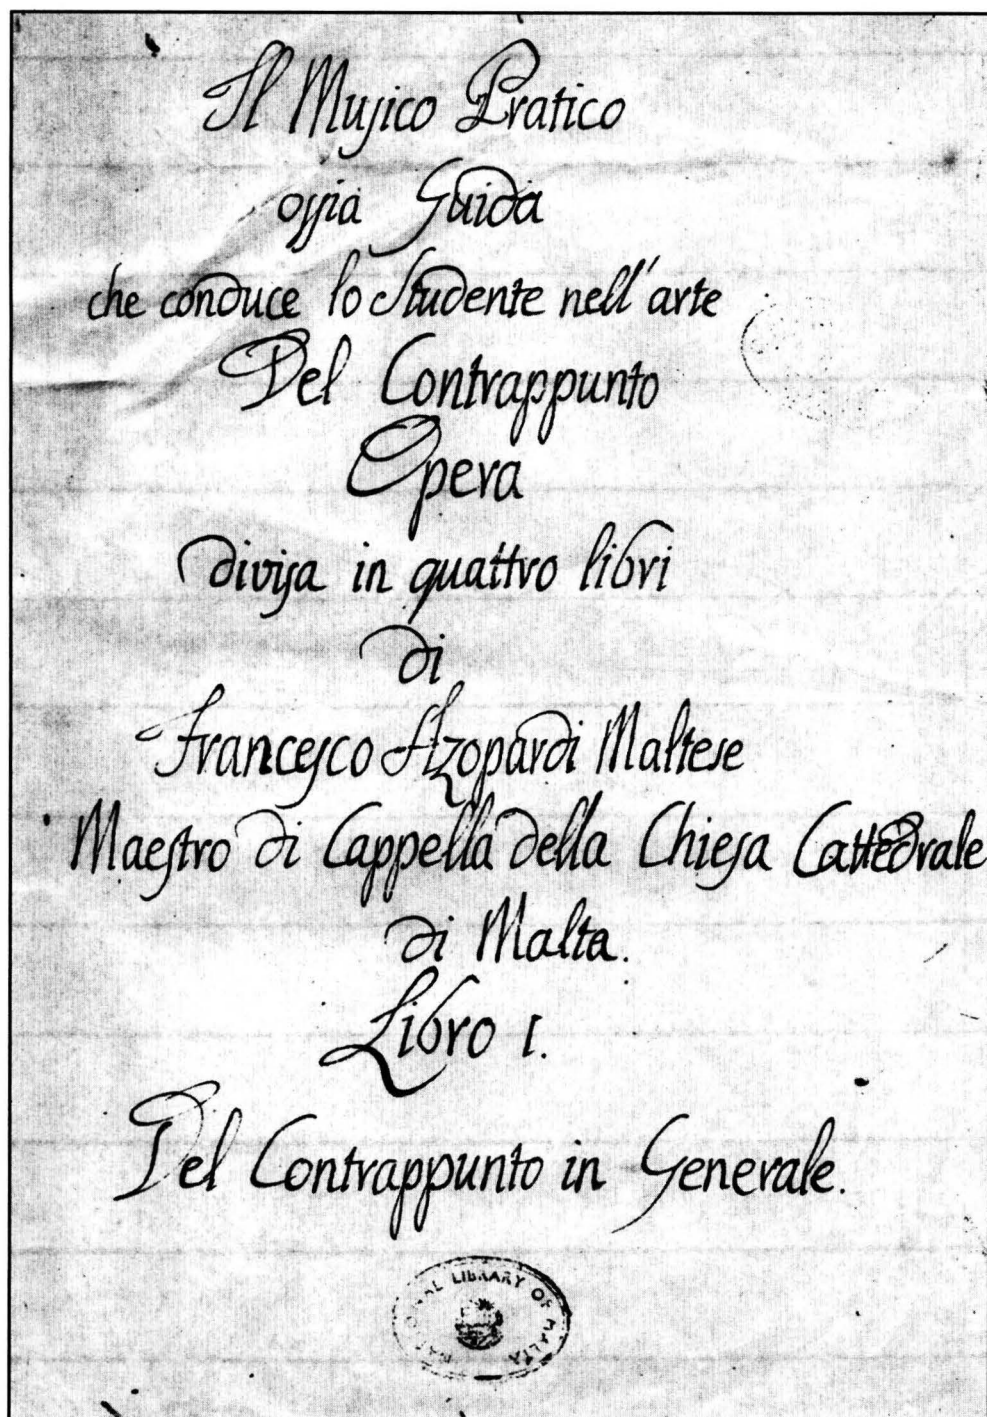 Il Musico Pratico
ossia Guida
che conduce lo Studente nell'arte
Del Contrappunto
Opera
divisa in quattro libri
di
Francesco Azopardi Maltese
Maestro di Cappella della Chiesa Cattedrale
di Malta.
Libro I.
Del Contrappunto in Generale.
NATIONAL LIBRARY OF MALTA